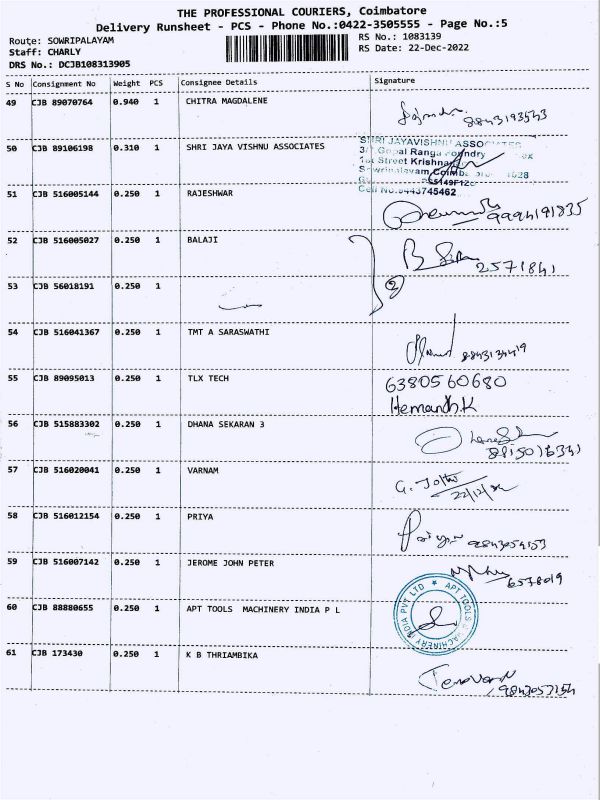 THE PROFESSIONAL COURIERS, Coimbatore
Delivery Runsheet - PCS - Phone No.:0422-3505555 - Page No.:5
Route: SOWRIPALAYAM
RS No.: 1083139
Staff: CHARLY
RS Date: 22-Dec-2022
DRS No.: DCJB108313905
S No Consignment No Weight PCS Consignee Details Signature
49 CJB 89070764 0.940 1 CHITRA MAGDALENE
8843193543
50 CJB 89106198 0.310 1 SHRI JAYA VISHNU ASSOCIATES
SHRI JAYAVISHNU ASSOCIATES
Gopal Ranga
1st Street
Cell No.
51 CJB 516005144 0.250 1 RAJESHWAR
9994191835
52 CJB 516005027 0.250 1 BALAJI
B
2571841
53 CJB 56018191 0.250 1
2
54 CJB 516041367 0.250 1 TMT A SARASWATHI
55 CJB 89095013 0.250 1 TLX TECH
6380560680
Hemandh.K
56 CJB 515883302 0.250 1 DHANA SEKARAN 3
57 CJB 516020041 0.250 1 VARNAM
G.
22/12/22
58 CJB 516012154 0.250 1 PRIYA
Priya
59 CJB 516007142 0.250 1 JEROME JOHN PETER
6578019
60 CJB 88880655 0.250 1 APT TOOLS MACHINERY INDIA P L
APT TOOLS & MACHINERY INDIA PVT LTD
61 CJB 173430 0.250 1 K B THRIAMBIKA
9843057154